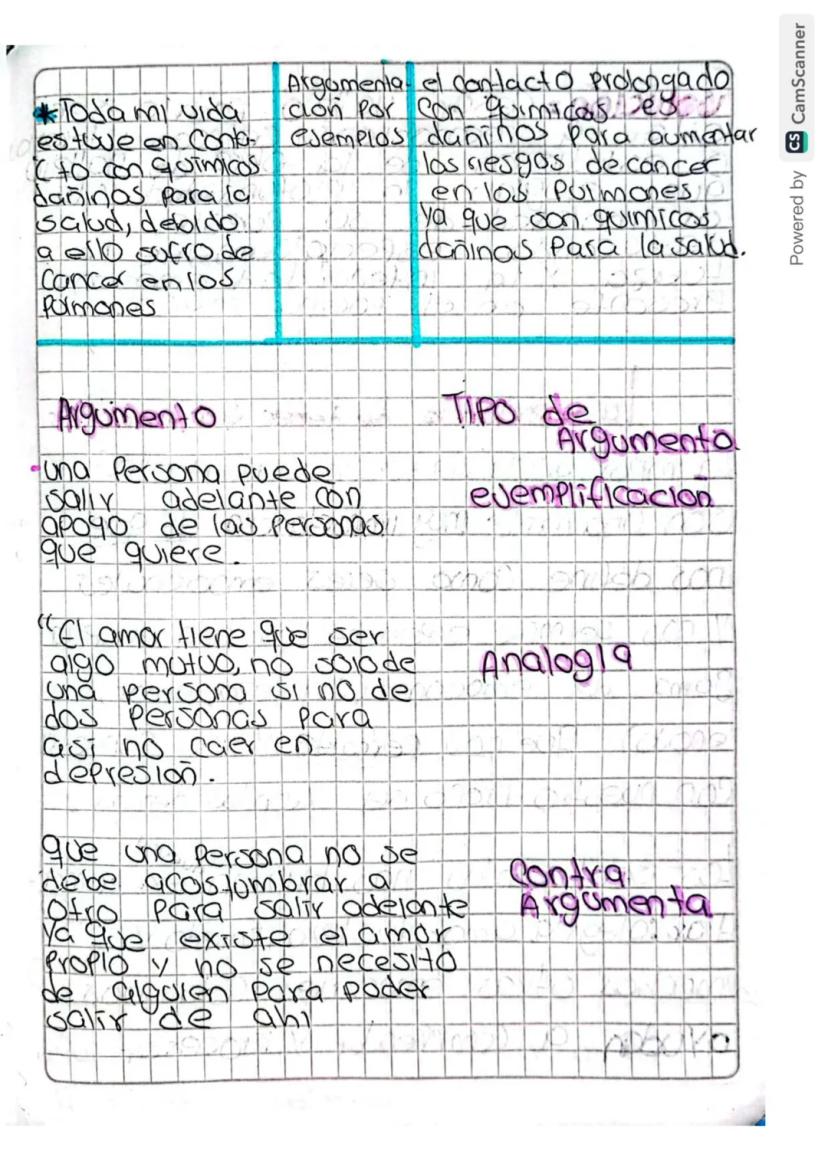 *Toda mi vida
estuve en conta-
cto con químicos
dañinos para la
salud, debido
a ello sufro de
cancer en los
Pulmones
Argumenta-
ción por
ejemplos
el contacto prolongado
con químicos es
dañinos para aumentar
los riesgos de cancer
en los pulmones
ya que son químicos
dañinos para la salud.
Argumento
TIPO de
Argumento
una Persona puede
salir adelante con
apoyo de las personas
que quiere.
ejemplificación
"El amor tiene que ser
algo mutuo, no solo de
una persona si no de
dos personas para
así no caer en
depresión.
Analogía
que una persona no se
debe acostumbrar a
otro para salir adelante
ya que existe el amor
propio y no se necesito
de alguien para poder
salir de ahí
Contra
Argumenta
Powered by CS CamScanner